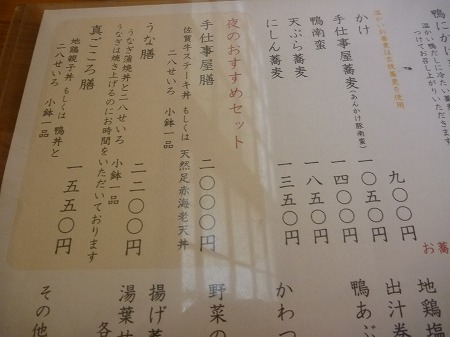 鴨にか
温かい鴨だしに冷たい蕎
つけてお召し上がりいただきます
かけ 九〇〇円
手仕事屋蕎麦(あんかけ豚南蛮) 一〇五〇円
鴨南蛮 一四〇〇円
天ぷら蕎麦 一八五〇円
にしん蕎麦 一三五〇円
夜のおすすめセット
手仕事屋膳 二〇〇〇円
佐賀牛ステーキ丼 もしくは 天然足赤海老天丼
二八せいろ 小鉢一品
うな膳 二二〇〇円
うなぎ蒲焼丼と二八せいろ 小鉢一品
うなぎは焼き上げるのにお時間をいただいております
真ごころ膳 一五五〇円
地鶏親子丼 もしくは 鴨丼と
二八せいろ 小鉢一品
お蕎
地鶏塩
出汁巻
鴨あぶ
かわつ
野菜の
揚げ蕎
湯葉
各
その他